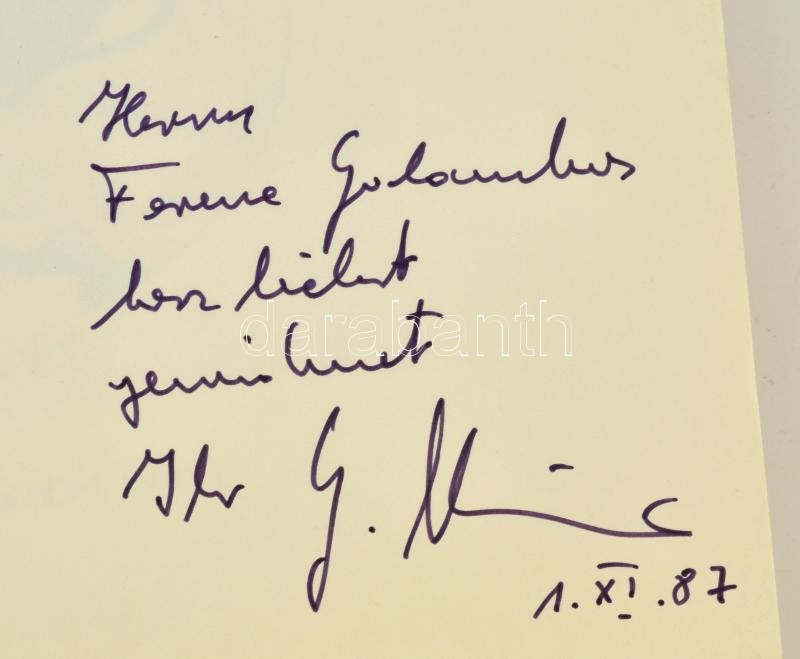 Herrn
Ferenc Galambos
herzlichst
gewidmet
Ihr G.
1. XI. 87
darabanth